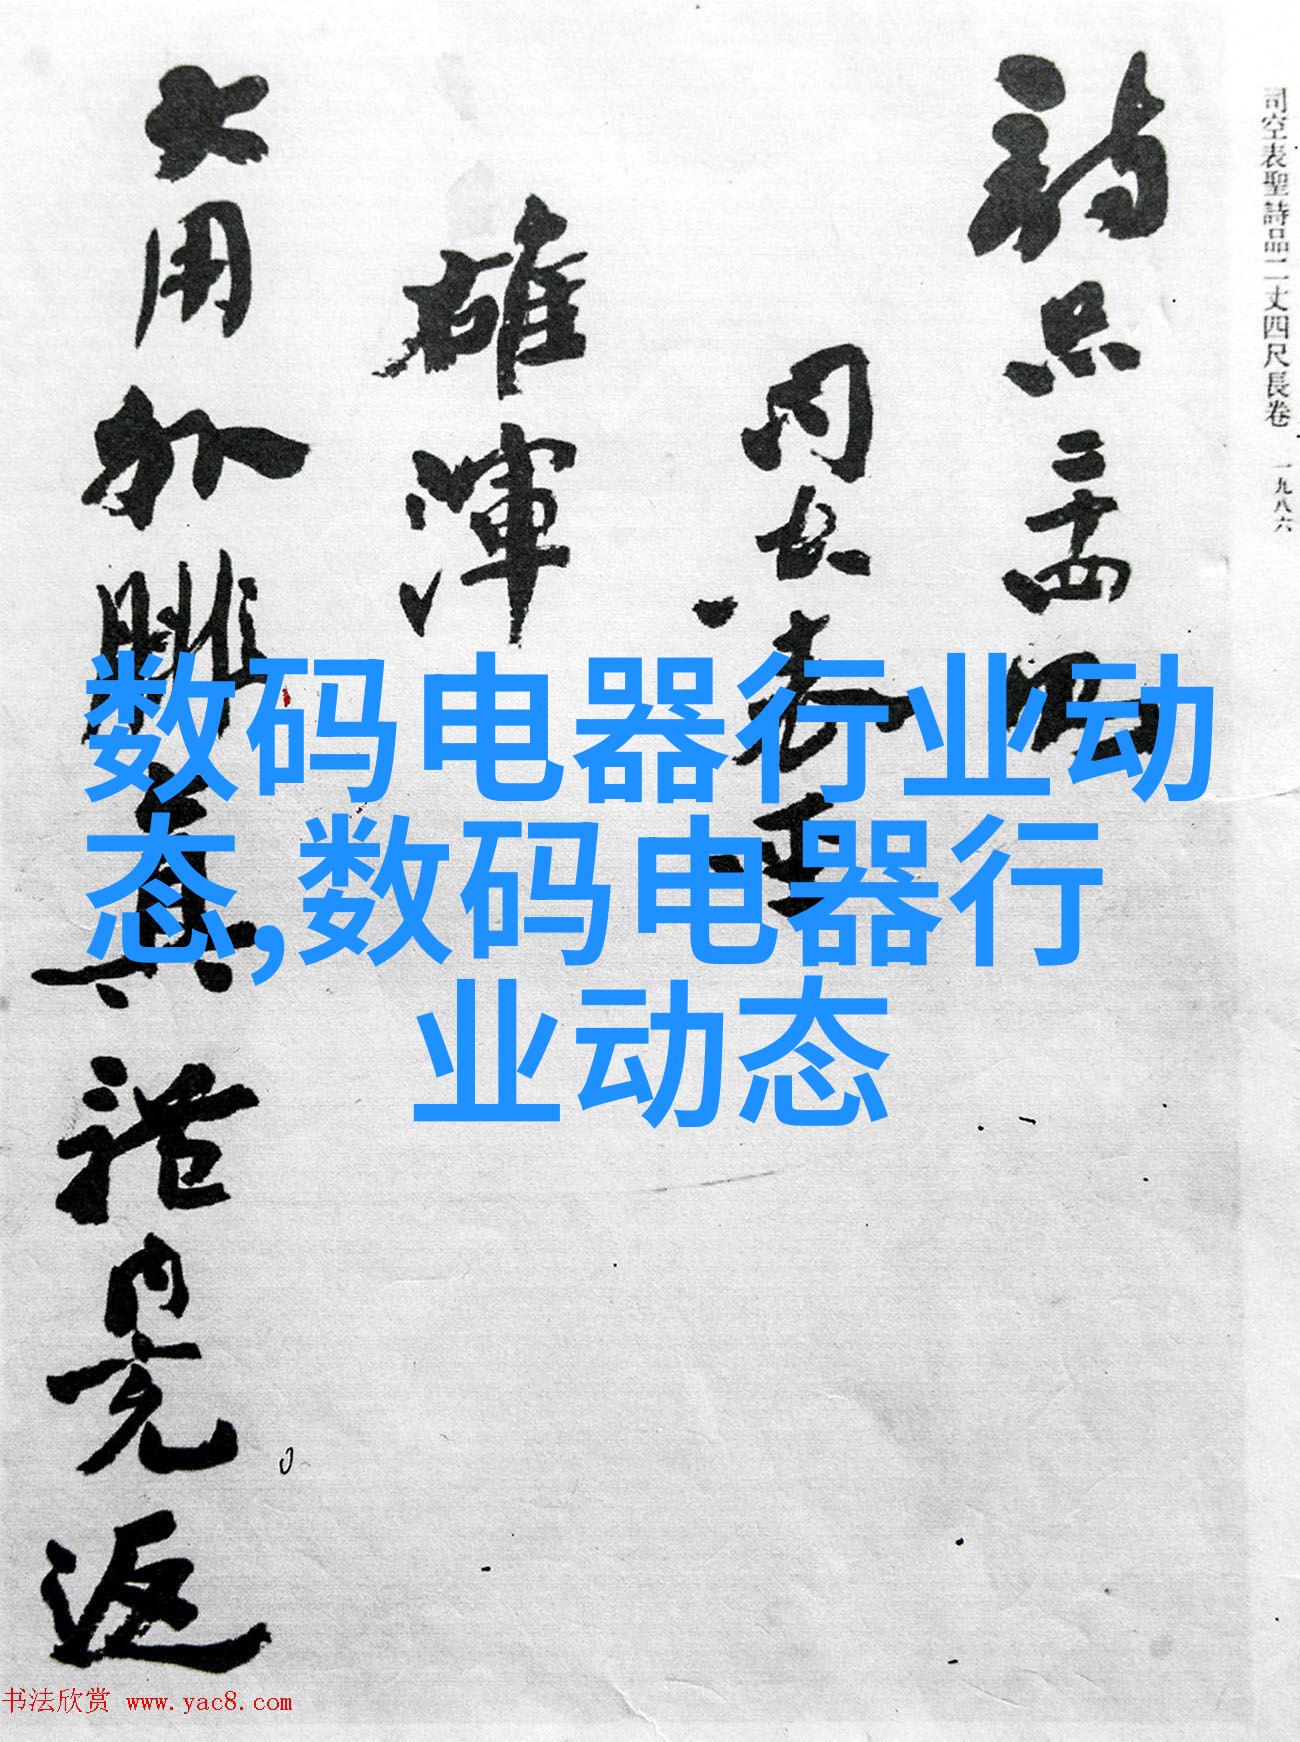 司空表聖詩品二丈四尺長卷 一九八六
詩品二十四則
司空表聖
雄渾
大用外腓真體內充返
数码电器行业动
态,数码电器行
业动态
书法欣赏 www.yac8.com